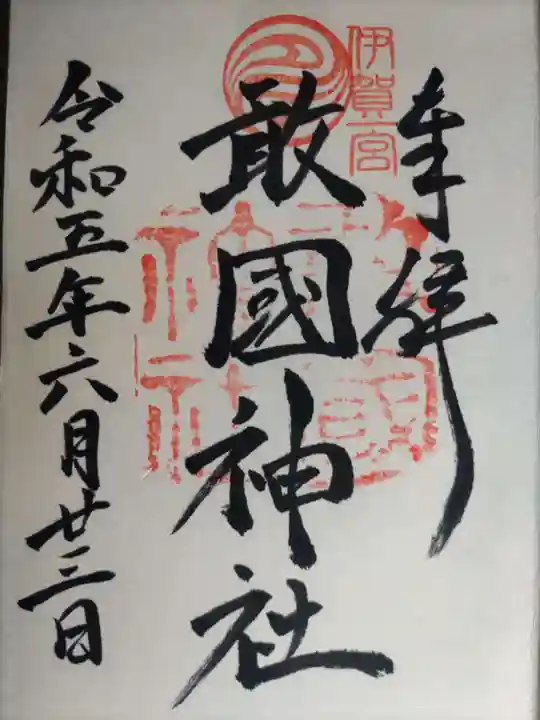 奉拝
伊賀一宮
敢國神社
敢國神社
令和五年六月廿三日